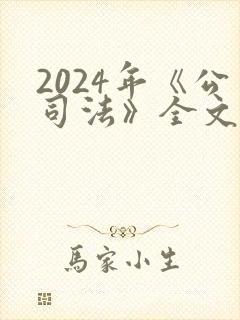 2024年《公
司法》全文
馬家小生